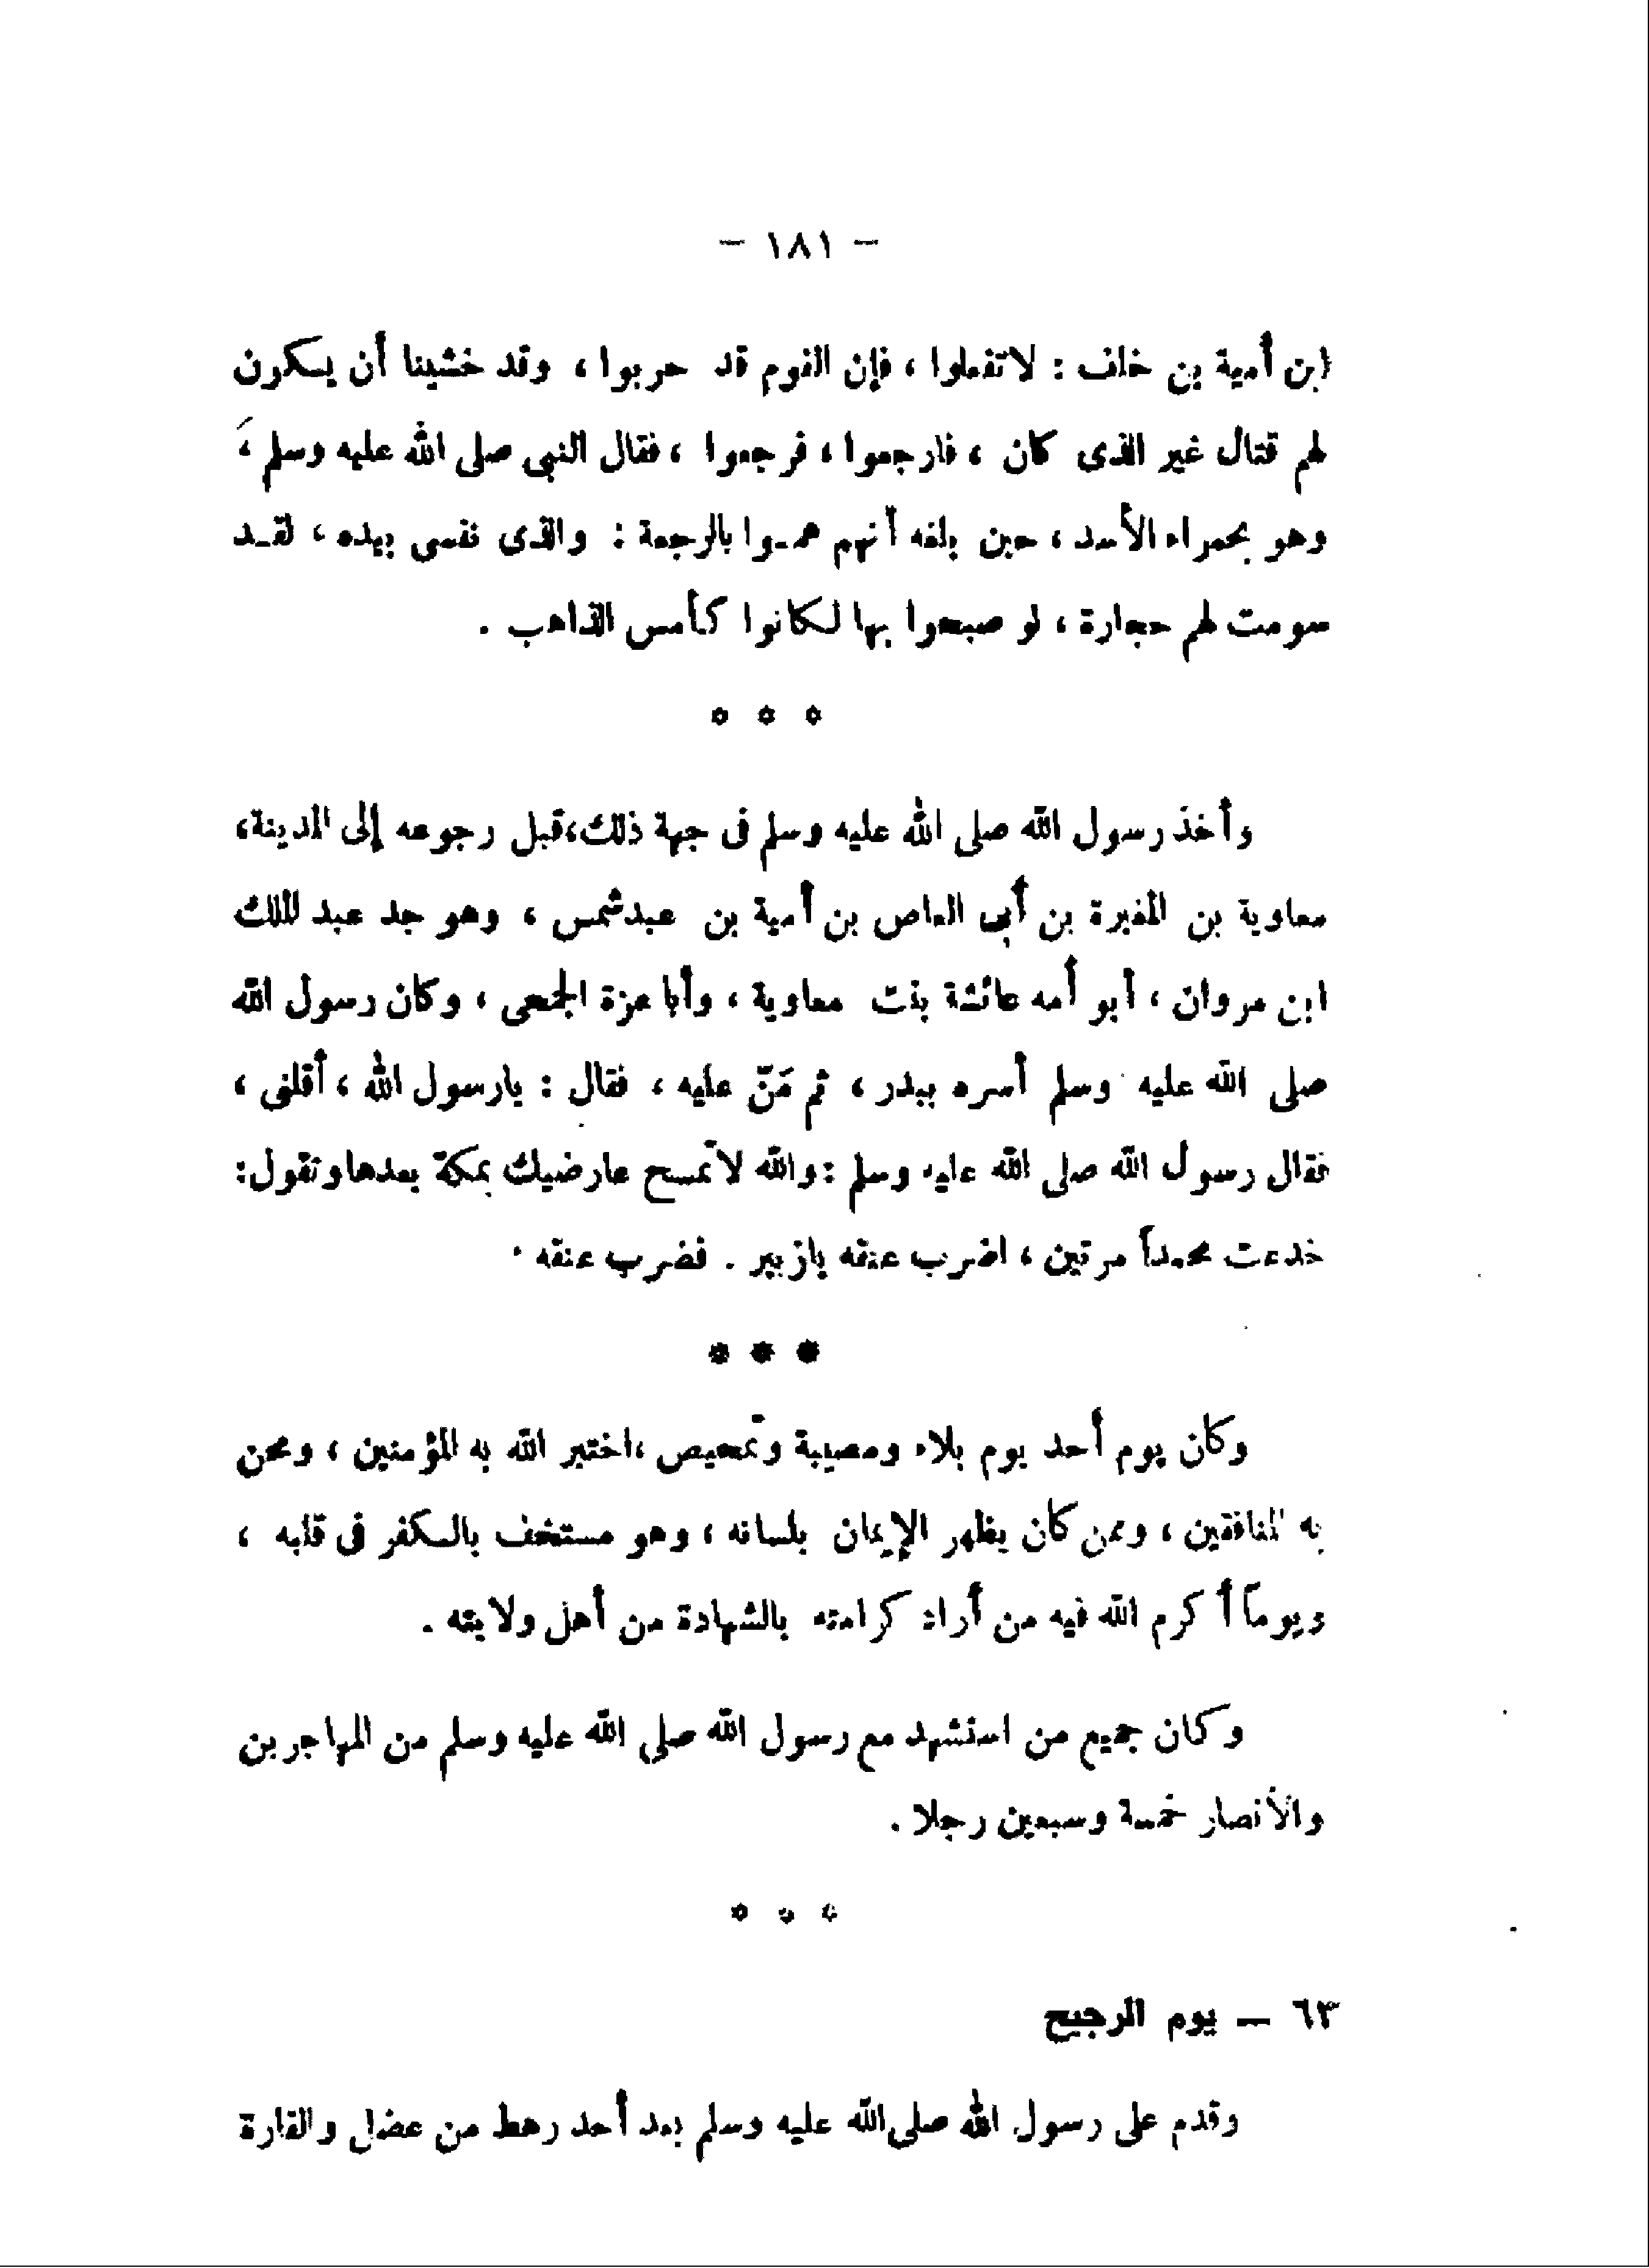 - ١٨١ -
ابن أمية بن خلف : لاتفعلوا ، فإن القوم قد حربوا ، وقد خشينا أن يكون
لهم قتال غير الذى كان ، فارجعوا ، فرجعوا ، فقال النبى صلى الله عليه وسلم ،
وهو بحمراء الأسد ، حين بلغه أنهم هموا بالرجعة : والذى نفسى بيده ، لقد
سومت لهم حجارة ، لو صبحوا بها لكانوا كأمس الذاهب .
* * *
وأخذ رسول الله صلى الله عليه وسلم فى جهة ذلك،قبل رجوعه إلى المدينة،
معاوية بن المغيرة بن أبى العاص بن أمية بن عبدشمس ، وهو جد عبد الملك
ابن مروان ، أبو أمه عائشة بنت معاوية ، وأبا عزة الجمحى ، وكان رسول الله
صلى الله عليه وسلم أسره ببدر ، ثم مَنّ عليه ، فقال : يارسول الله ، أقلنى ،
فقال رسول الله صلى الله عليه وسلم :والله لاتمسح عارضيك بمكة بعدها وتقول:
خدعت محمداً مرتين ، اضرب عنقه يازبير . فضرب عنقه .
* * *
وكان يوم أحد يوم بلاء ومصيبة وتمحيص ،اختبر الله به المؤمنين ، ومحن
به المنافقين ، وممن كان يظهر الإيمان بلسانه ، وهو مستخف بالكفر فى قلبه ،
ويوماً أكرم الله فيه من أراد كرامته بالشهادة من أهل ولايته .
وكان جميع من استشهد مع رسول الله صلى الله عليه وسلم من المهاجرين
والأنصار خمسة وسبعين رجلا .
* * *
٦٣ — يوم الرجيح
وقدم على رسول الله صلى الله عليه وسلم بعد أحد رهط من عضل والقارة